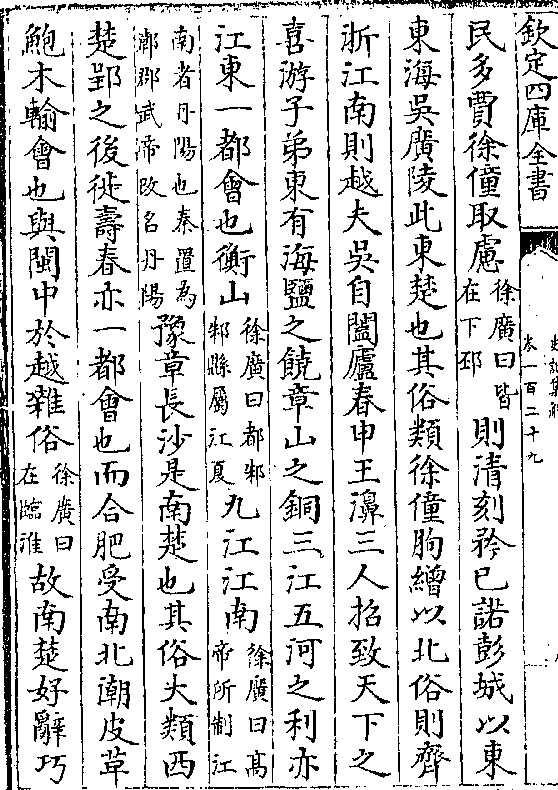 欽定四庫全書
卷一百二十九
民多賈徐僮取慮徐廣曰皆在下邳則清刻矜已諾彭城以東
東海吳廣陵此東楚也其俗類徐僮朐繒以北俗則齊
浙江南則越夫吳自闔廬春申王濞三人招致天下之
喜游子弟東有海鹽之饒章山之銅三江五河之利亦
江東一都會也衡山徐廣曰都邾邾縣屬江夏九江江南徐廣曰高帝所制江
南者丹陽也秦置為鄣郡武帝改名丹陽豫章長沙是南楚也其俗大類西
楚郢之後徙壽春亦一都會也而合肥受南北潮皮草
鮑木輸會也與閩中於越雜俗徐廣曰在臨淮故南楚好辭巧